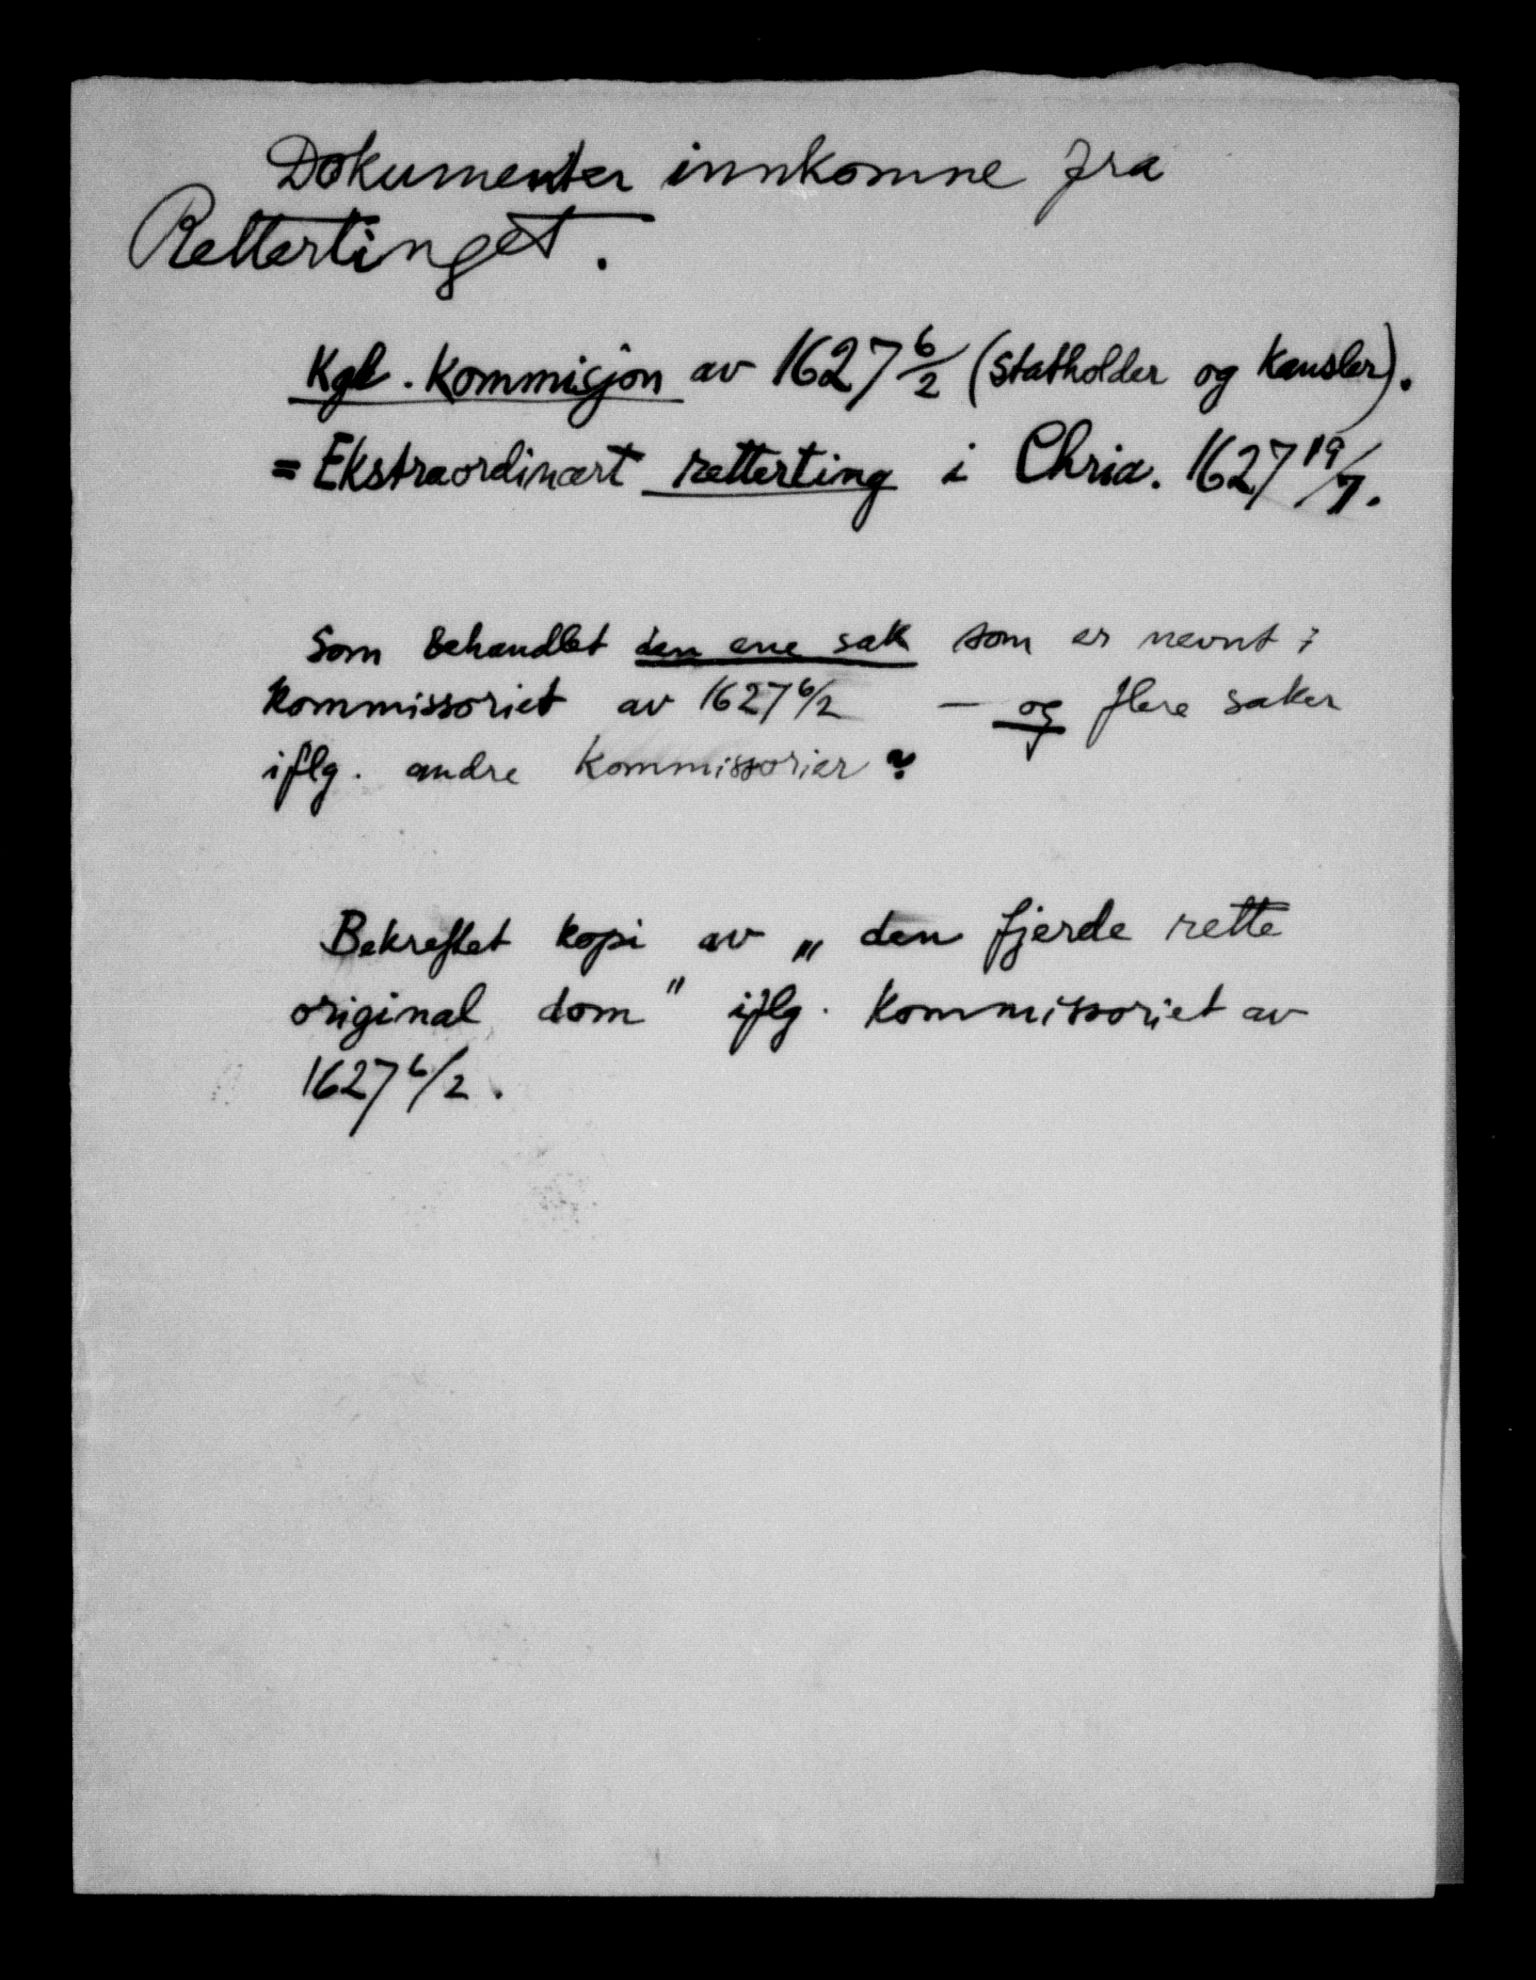 Dokumenter innkomne fra
Rettertinget.
Kgl. Kommisjon av 1627 6/2 (Statholder og Kansler).
= Ekstraordinært retterting i Chria. 1627 19/7.
Som behandlet den ene sak som er nevnt i
Kommissoriet av 1627 6/2 — og flere saker
iflg. andre Kommissorier?
Bekreftet kopi av „den fjerde rette
original dom" iflg. Kommissoriet av
1627 6/2.